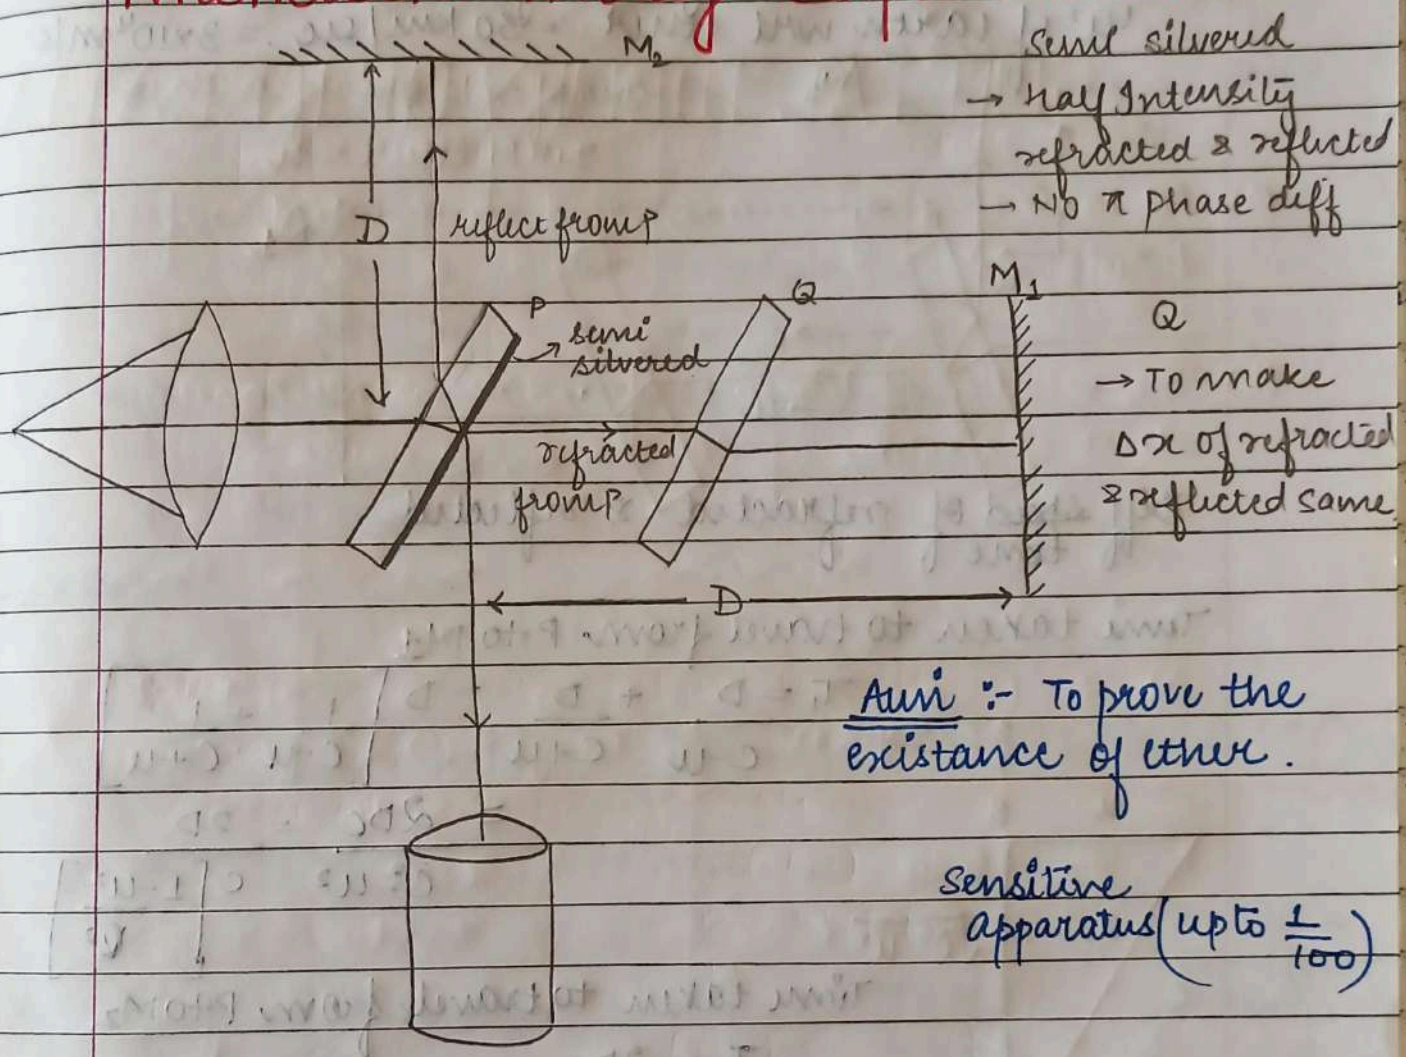 M₂
Semi silvered
→ Half Intensity
refracted & reflected
→ No π phase diff
D
reflect from P
P
semi
silvered
Q
M₁
Q
→ To make
Δx of refracted
& reflected same
refracted
from P
D
Aim :- To prove the
existance of ether.
Sensitive
apparatus (upto 1/100)